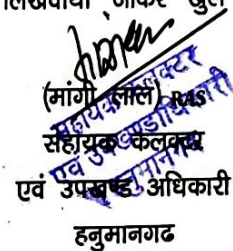 लिखवाया जाकर खुले
(मांगी लाल) RAS
सहायक कलक्टर
एवं उपखण्ड अधिकारी
हनुमानगढ
सहायक कलक्टर
एवं उपखण्ड अधिकारी
हनुमानगढ